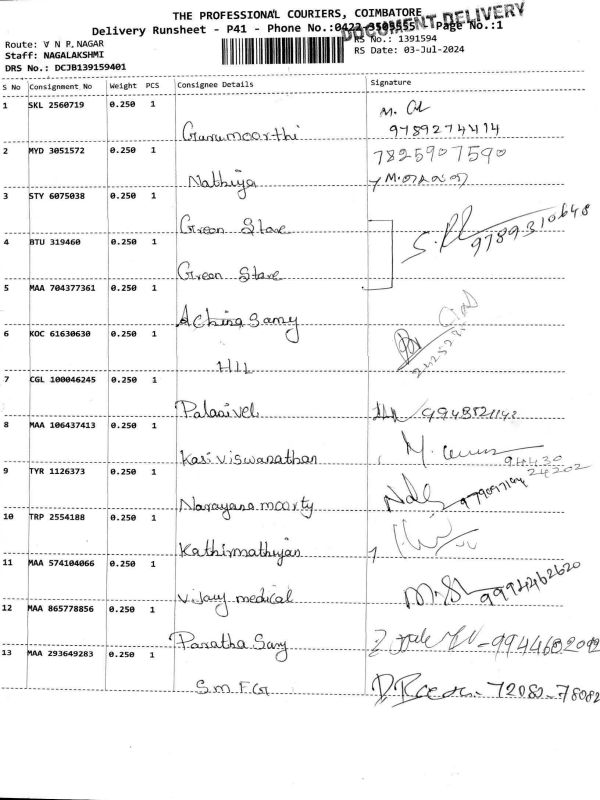 THE PROFESSIONAL COURIERS, COIMBATORE
DOCUMENT DELIVERY
Delivery Runsheet - P41 - Phone No.:0422-3509555 Page No.:1
Route: V N R NAGAR
RS No.: 1391594
Staff: NAGALAKSHMI
RS Date: 03-Jul-2024
DRS No.: DCJB139159401
S No Consignment No Weight PCS Consignee Details Signature
1 SKL 2560719 0.250 1
Gurumoorthi 9789274414
2 MYD 3051572 0.250 1 7825907590
Nathiya
3 STY 6075038 0.250 1
Green Store 9789310648
4 BTU 319460 0.250 1
Green Store
5 MAA 704377361 0.250 1
Achina Samy
6 KOC 61630630 0.250 1
HIL
7 CGL 100046245 0.250 1
Palaaivel
8 MAA 106437413 0.250 1
Kasi viswanathan 94430
24202
9 TYR 1126373 0.250 1
Narayana moorty
10 TRP 2554188 0.250 1
Kathirmathiyan
11 MAA 574104066 0.250 1
Vijay medical 9994462620
12 MAA 865778856 0.250 1
Paratha Samy
13 MAA 293649283 0.250 1
S.M.F.G 72082-78082